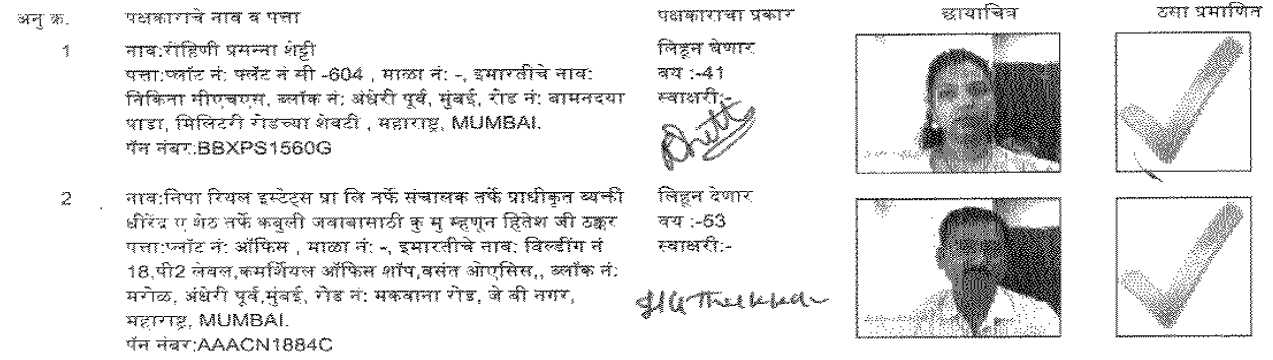 अनु क्र. पक्षकाराचे नाव व पत्ता पक्षकाराचा प्रकार छायाचित्र ठसा प्रमाणित
1 नाव:रोहिणी प्रसन्ना शेट्टी लिहून घेणार
पत्ता:प्लॉट नं: फ्लॅट नं सी -604 , माळा नं: -, इमारतीचे नाव: वय :-41
निकिना सीएचएस, ब्लॉक नं: अंधेरी पूर्व, मुंबई, रोड नं: बामनदया स्वाक्षरी:-
पाडा, मिलिटरी रोडच्या शेवटी , महाराष्ट्र, MUMBAI.
पॅन नंबर:BBXPS1560G
2 नाव:निपा रियल इस्टेट्स प्रा लि तर्फे संचालक तर्फे प्राधीकृत व्यक्ती लिहून देणार
धीरेंद्र ए शेठ तर्फे कबुली जवाबासाठी कु मु म्हणून हितेश जी ठक्कर वय :-53
पत्ता:प्लॉट नं: ऑफिस , माळा नं: -, इमारतीचे नाव: बिल्डींग नं स्वाक्षरी:-
18,पी2 लेवल,कमर्शियल ऑफिस शॉप,वसंत ओएसिस,, ब्लॉक नं:
मरोळ, अंधेरी पूर्व,मुंबई, रोड नं: मकवाना रोड, जे बी नगर,
महाराष्ट्र, MUMBAI.
पॅन नंबर:AAACN1884C